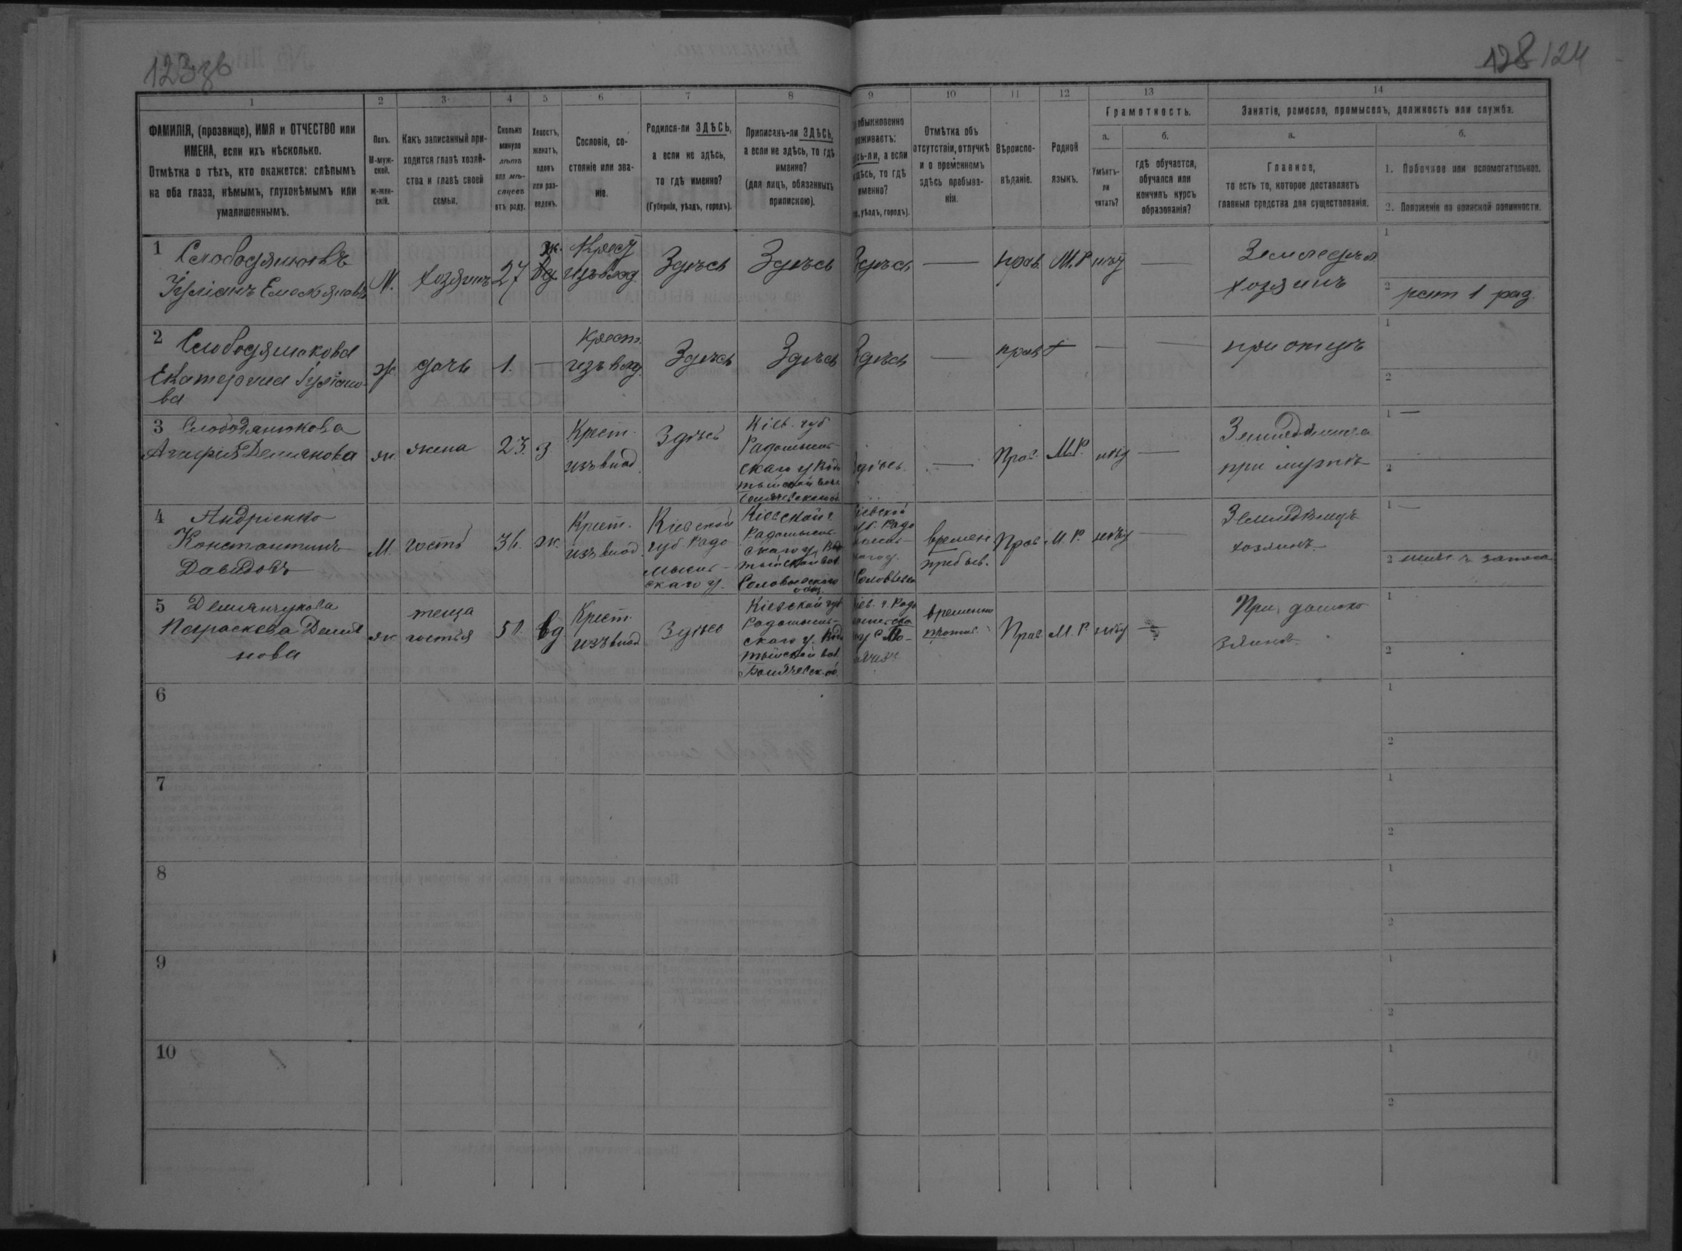 123зв
128 124
1 2 3 4 5 6 7 8 9 10 11 12 13 14
ФАМИЛІЯ, (прозвище), ИМЯ и ОТЧЕСТВО или
ИМЕНА, если ихъ нѣсколько.
Отмѣтка о тѣхъ, кто окажется: слѣпымъ
на оба глаза, нѣмымъ, глухонѣмымъ или
умалишеннымъ.
Полъ.
М-муж-
ской.
ж-жен-
скій.
Какъ записанный при-
ходится главѣ хозяй-
ства и главѣ своей
семьи.
Сколько
минуло
лѣтъ
или мѣ-
сяцевъ
отъ роду.
Холостъ,
женатъ,
вдовъ
или раз-
веденъ.
Сословіе, со-
стояніе или зва-
ніе.
Родился-ли ЗДѢСЬ,
а если не здѣсь,
то гдѣ именно?
(Губернія, уѣздъ, городъ).
Приписанъ-ли ЗДѢСЬ,
а если не здѣсь, то гдѣ
именно?
(для лицъ, обязанныхъ
припискою).
обыкновенно
проживаетъ:
здѣсь-ли, а если
не здѣсь, то гдѣ
именно?
уѣздъ, городъ).
Отмѣтка объ
отсутствіи, отлучкѣ
и о временномъ
здѣсь пребыва-
ніи.
Вѣроиспо-
вѣданіе.
Родной
языкъ.
Грамотность.
а.
Умѣетъ-
ли
читать?
б.
гдѣ обучается,
обучался или
кончилъ курсъ
образованія?
Занятіе, ремесло, промыселъ, должность или служба.
а.
Главное,
то есть то, которое доставляетъ
главныя средства для существованія.
б.
1. Побочное или вспомогательное.
2. Положеніе по воинской повинности.
1 Слободянюкъ
Іуліанъ Емельяновъ М. хозяинъ 27 ж. Крест. изъ влад. Здѣсь Здѣсь Здѣсь — прав М.Р нѣт —
хозяинъ
1
2 рат 1 раз.
2 Слободянюкова
Екатерина Іуліано-
ва ж дочь 1. — Крест. изъ влад. Здѣсь Здѣсь Здѣсь — прав — — при отцѣ
1
2
3 Слободянюкова
Агафія Демянова ж. жена 23. З Крест. изъ влад. Здѣсь
Кіев. губ
Радомысль-
скаго у
здѣсь — Прав М.Р. нѣт —
при мужѣ
1 —
2
4 Андріенко
Константинъ
Давидовъ М гость 36. ж. Крест. изъ влад.
Кіевской
губ Радо
мысль-
скаго у.
Кіевской г.
Радомысль-
скаго у.
времен
пребыв. Прав М Р. нѣт —
Земледѣлецъ
хозяинъ
1 —
2
5 Демянчукова
Параскева Демья
нова ж теща
гостья 50 вд Крест. изъ влад Здѣсь
Кіевской губ
Радомысль-
скаго у.
временно
Прав М.Р нѣт
При
1
2
6 1
2
7 1
2
8 1
2
9 1
2
10 1
2